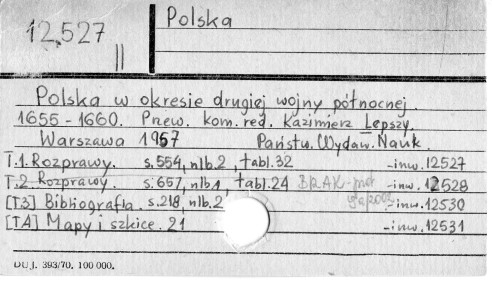 12.527
II
Polska
Polska w okresie drugiej wojny północnej.
1655-1660. Przew. kom. red. Kazimierz Lepszy.
Warszawa 1957 Państw. Wydaw. Nauk.
T.1. Rozprawy. s. 554, nlb. 2, tabl. 32 -inw. 12527
T.2. Rozprawy. s. 657, nlb 1, tabl. 24 BRAK -inw. 12528
[T3] Bibliografia. s. 218, nlb. 2 -inw. 12530
[T4] Mapy i szkice. 21 -inw. 12531
DUJ. 393/70. 100 000.